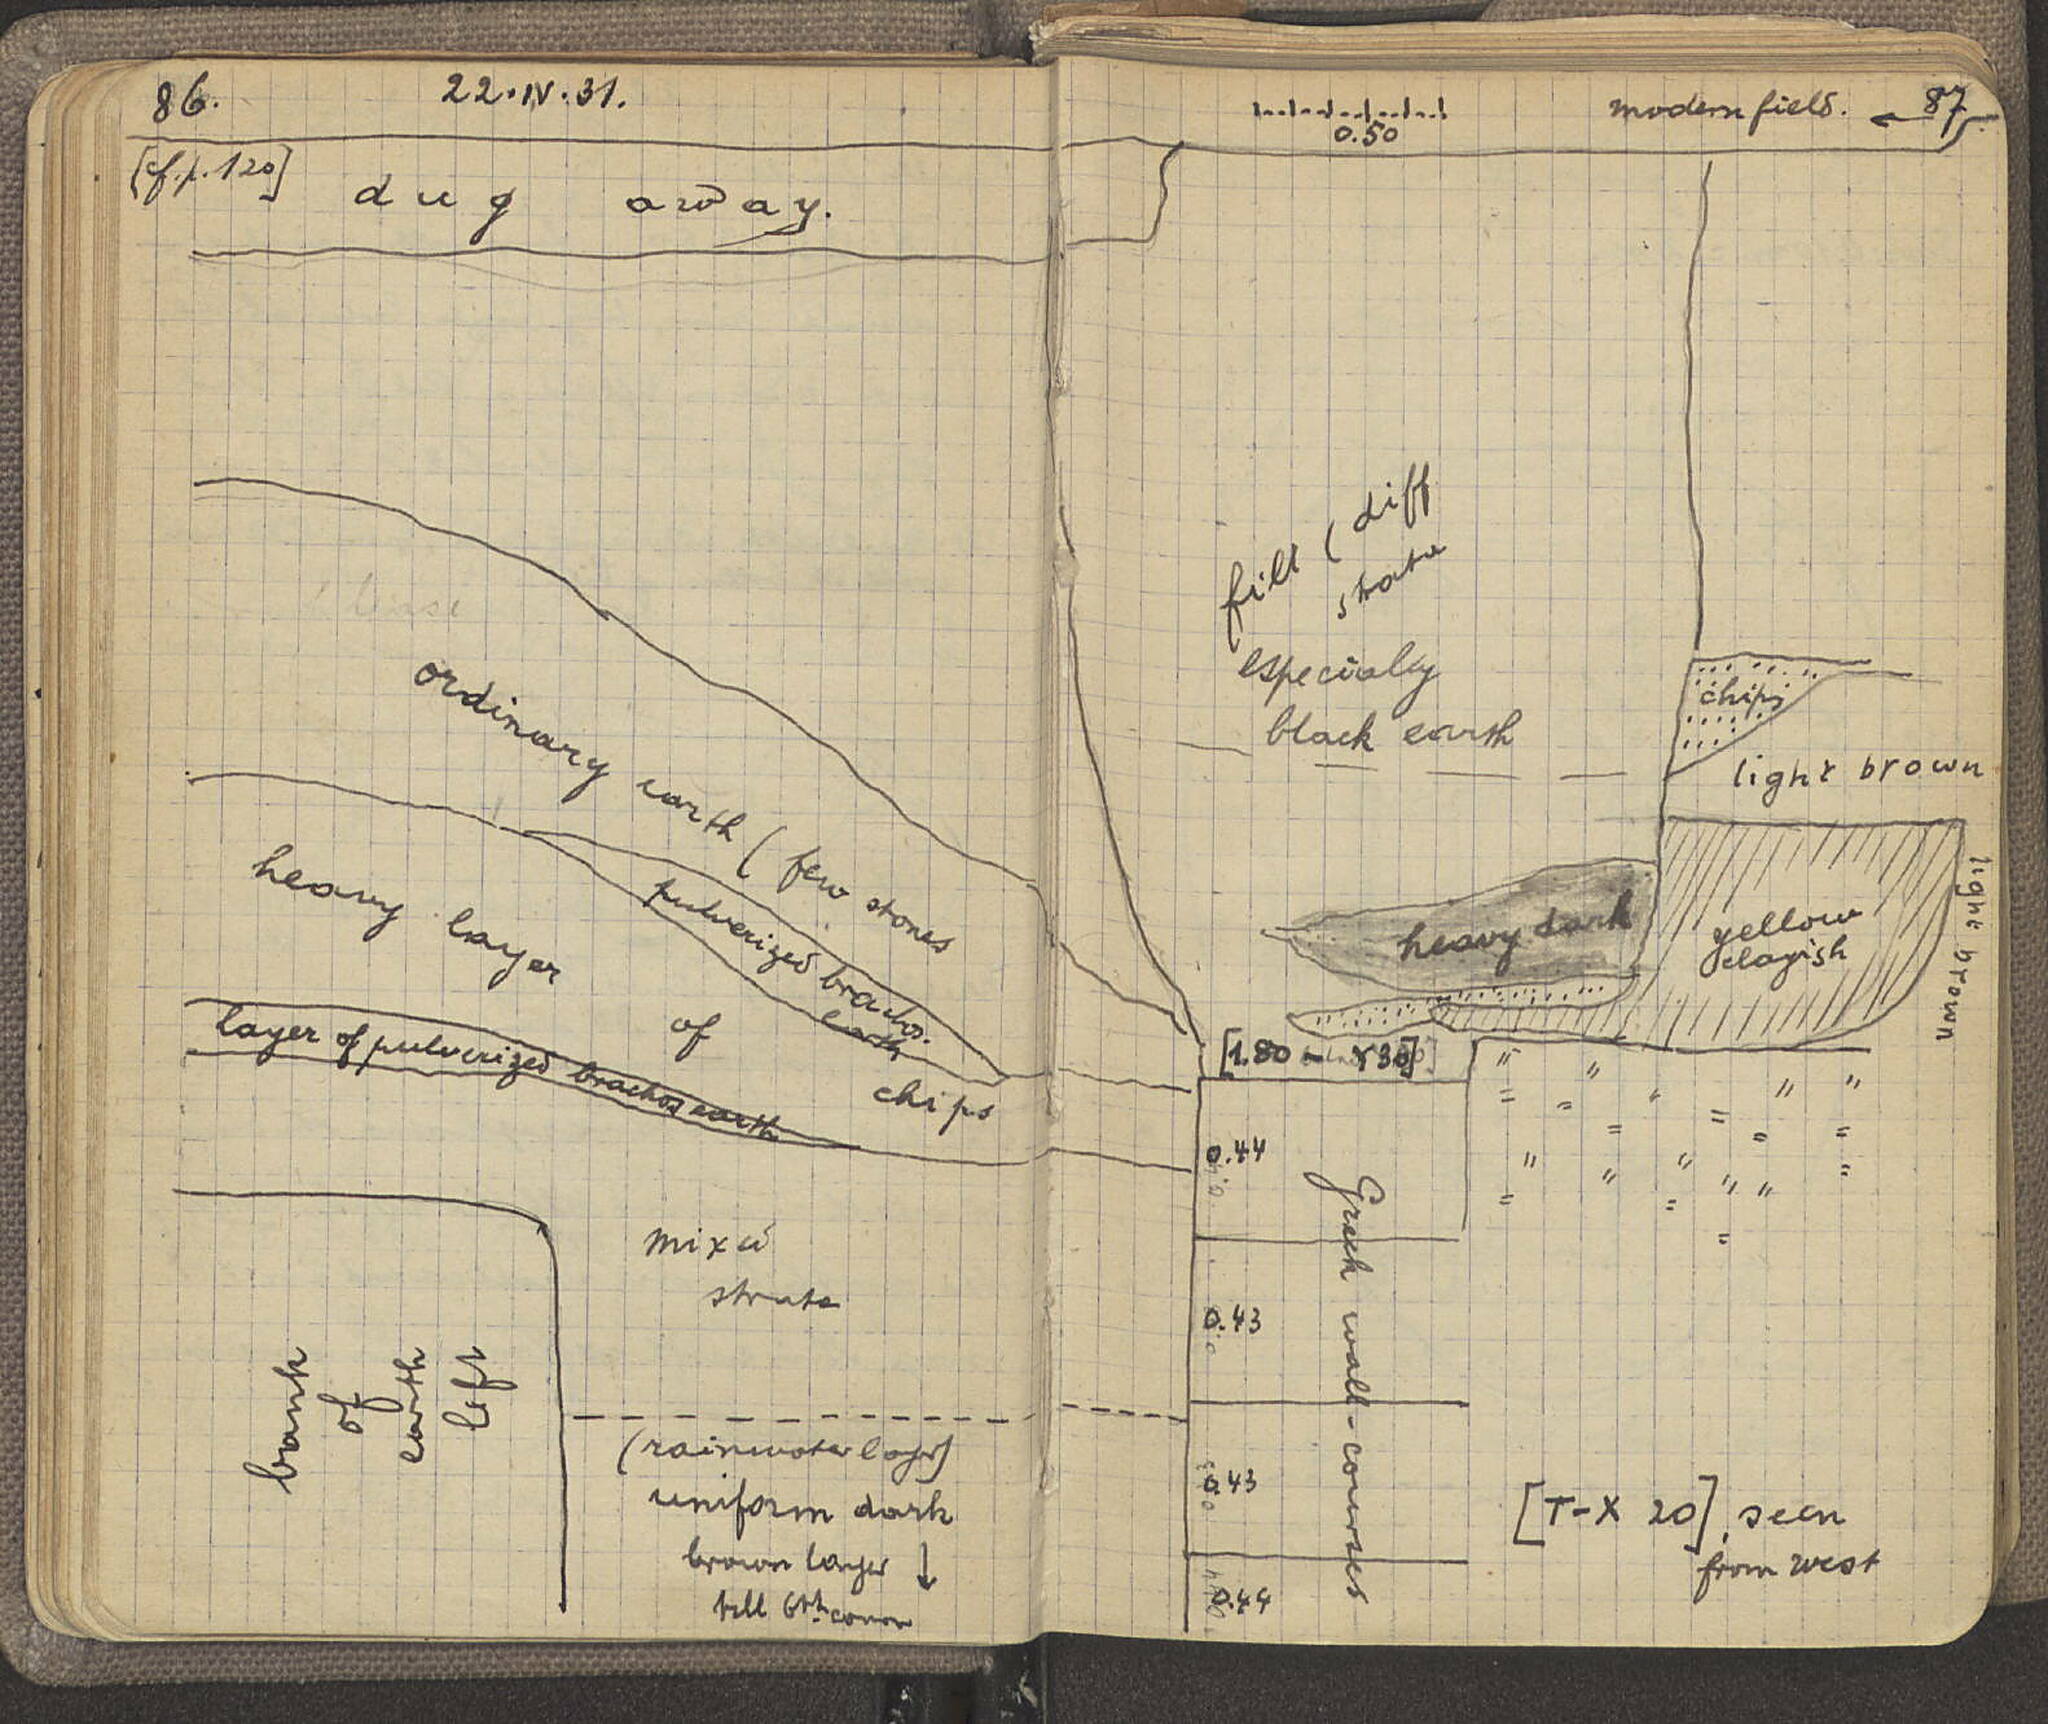 86.
22·IV·31.
[cf. p. 120]
dug away.
ordinary earth (few stones
pulverized brachos.
earth
heavy layer
of
chips
layer of pulverized brachos earth
mixed
strata
bank
of
earth
left
(rainwater layer)
uniform dark
brown layer ↓
till 6th course
0.50
modern field. ←
87
fill (diff
strata
especially
black earth
chips
light brown
heavy dark
yellow
clayish
light brown
0.44
0.43
0.43
0.44
Greek wall-courses
[T-X 20], seen
from west